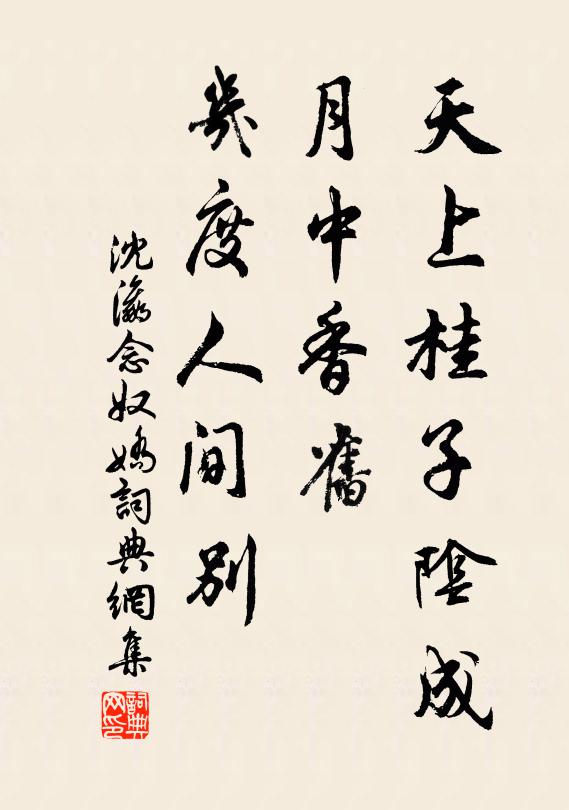 天上桂子陰成
月中香舊
幾度人間別
沈瀛念奴嬌詞典網集
詞典网印